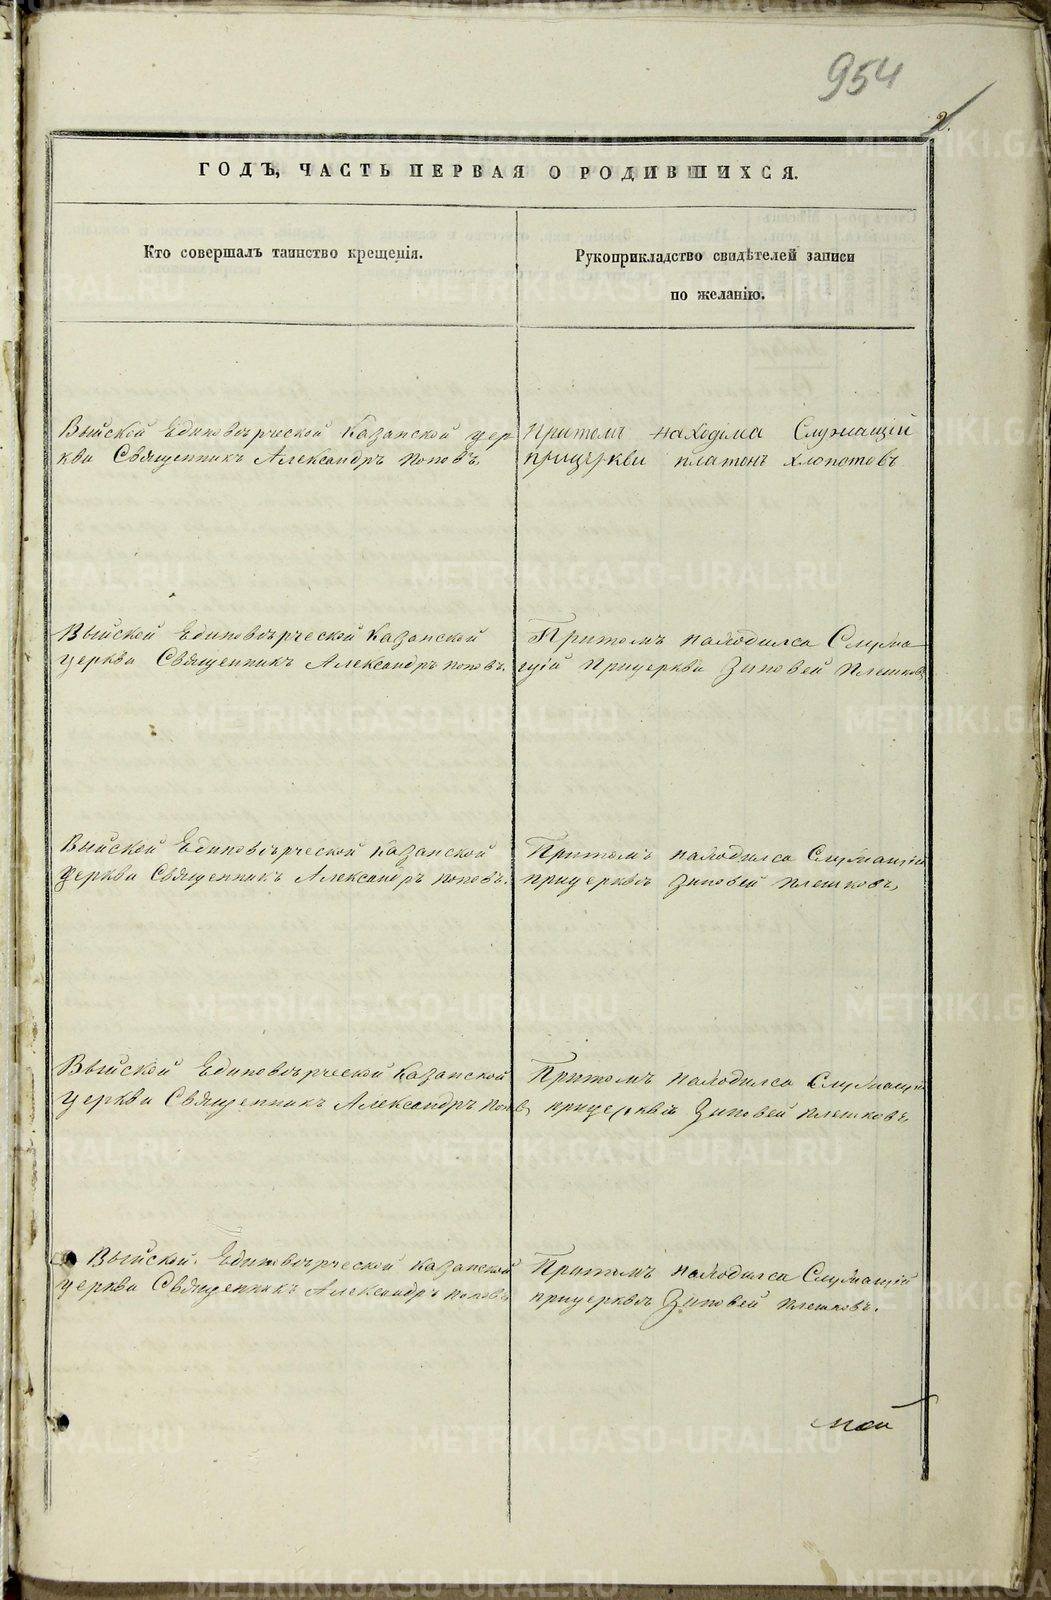 954
2.
ГОДЪ, ЧАСТЬ ПЕРВАЯ О РОДИВШИХСЯ.
Кто совершалъ таинство крещенія.
Рукоприкладство свидѣтелей записи
по желанію.
Выйской Единовѣрческой Казанской цер
кви Священникъ Александръ Поповъ
Притомъ находілса Служащій
прицѣркви платонъ хлопотовъ
Выйской Единовѣрческой Казанской
церкви Священникъ Александръ поповъ.
Притомъ находилса Служа
щій Прицеркви Зиновей Плешков
Выйской Единовѣрческой Казанской
Церкви Священникъ Александръ поповъ.
Притомъ находилса Служащій
прицерквѣ Зиновей плешковъ
Выйской Единовѣрческой Казанской
церкви Священникъ Александръ попов
Притомъ находилса Служащій
прицерквѣ Зиновей плешковъ
Выйской Единовѣрческой Казанской
церкви Священникъ Александръ поповъ
Притомъ находилса Служащій
прицерквѣ Зиновей плешковъ.
METRIKI.GASO-URAL.RU